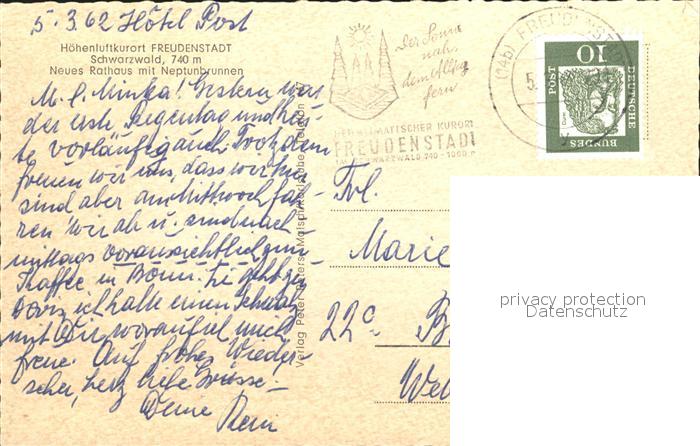 5.3.62 Hotel Post
Höhenluftkurort FREUDENSTADT
Schwarzwald, 740 m
Neues Rathaus mit Neptunbrunnen
M. l. Minka! Gestern war
der erste Regentag und heu-
te vorläufig auch. Trotzdem
freuen wir uns, dass wir hier
sind aber am Mittwoch fah-
ren wir ab u. sind nach-
mittags voraussichtlich zum
Kaffee in Bonn. Es geht
ich halte einen Schwatz
mit Dir worauf ich mich
freue. Auf frohes Wieder-
sehen, herz. liebe Grüsse -
Deine
Verlag Peter
Der Sonne
nah,
dem Alltag
fern
HEILKLIMATISCHER KURORT
FREUDENSTADT
IM SCHWARZWALD 740-1000 m
(14b) FREUDENST
5.
10
POST
DEUTSCHE
BUNDES
Dürer
Frl.
Marie
22c B
We
privacy protection
Datenschutz